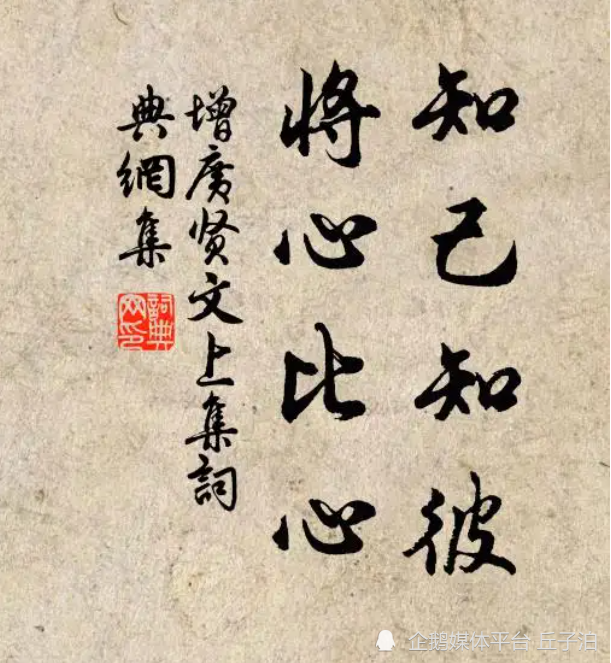 知己知彼
將心比心
增廣贤文上集詞
典網集
詞典
网印
企鹅媒体平台 丘子泊